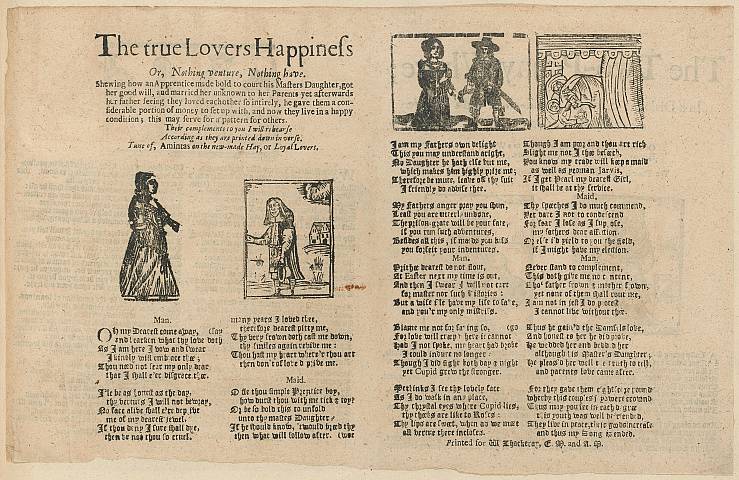 The true Lovers Happiness
Or, Nothing venture, Nothing have.
Shewing how an Apprentice made bold to court his Masters Daughter, got
her good will, and married her unknown to her Parents yet afterwards
her father seeing they loved each other so intirely, he gave them a con-
siderable portion of money to set up with, and now they live in a happy
condition; this may serve for a pattern for others.
Their complements to you I will rehearse
According as they are printed down in verse.
Tune of, Amintas on the new-made Hay, or Loyal Lovers.
Man.
OH my Dearest come away, stay
and hearken what thy love doth
As I am here I vow and swear
I kindly will embrace thee;
Thou need not fear my only dear
that I shall e'er disgrace thee.
I'le be as honest as the day,
thy secrets I will not bewray,
No face alive shall e'er deprive
me of my dearest jewel.
If thou deny I sure shall dye,
then be not thou so cruel.
many years I loved thee,
therefore dearest pitty me,
Thy very frown doth cast me down,
thy smiles again revive me:
Thou hast my heart where'e thou art
then don't of love deprive me.
Maid.
O Fie thou simple Prentice boy,
how durst thou with me thus toy?
Or be so bold this to unfold
unto thy masters Daughter?
If he should know, 'twould breed thy woe
then what will follow after.
I am my Fathers own delight
This you may understand aright,
No Daughter he hath else but me,
which makes him highly prize me;
Therefore be mute, leave off thy suit
I friendly do advise thee.
My Fathers anger pray you shun,
Least you are utterly undone,
The prison-gate will be your fate,
if you run such adventures,
Besides all this, if maids you kiss
you forfeit your indentures.
Man.
Prithee dearest do not flout,
At Easter next my time is out,
And then I swear I will not care
for master nor such Fistories:
But a wife I'le have my life to save,
and you're my only mistriss.
Blame me not for loving so, go
For love will creep where it cannot
Had I not spoke, my heart had broke
I could indure no longer:
Though I did fight both day & night
yet Cupid grew the stronger.
Methinks I see thy lovely face
As I do walk in any place,
Thy chrystal eyes where Cupid lies,
thy cheeks are like to Roses
Thy lips are sweet, when as we meet
all vertue there incloses.
Though I am poor and thou art rich
Slight me not I thee beseech,
You know my trade will keep a maid
as well as yeoman Jarvis,
If I get Pearl my dearest Girl,
it shall be at thy service.
Maid,
Thy speeches I do much commend,
Yet dare I not to condescend
For fear I lose as I suppose,
my fathers dear affection.
Or else i'd yield to you the field,
if I might have my election.
Man.
Never stand to complement,
This doth give me no content,
Tho' father frown & mother frown,
yet none of them shall rout me,
I am not in jest I do protest
I cannot like without thee.
Thus he gained the Damsels love,
And honest to her he did prove,
He wedded her and bedded her
although his Master's Daughter;
He pleased her well the truth to tell,
and parents love came after.
For they gave them eight score pound
whereby this couple's favours crown'd
Thus may you see in each degree
true love was well rewarded.
They live in peace, their goods increase
and thus my Song is ended.
Printed for W Thackeray, E. M. and A. M.